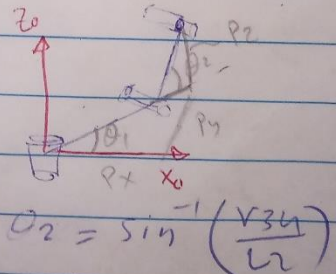 Z₀
Pz
θ₂
θ₁
Py
Px X₀
θ₂ = sin⁻¹ (r34 / L2)